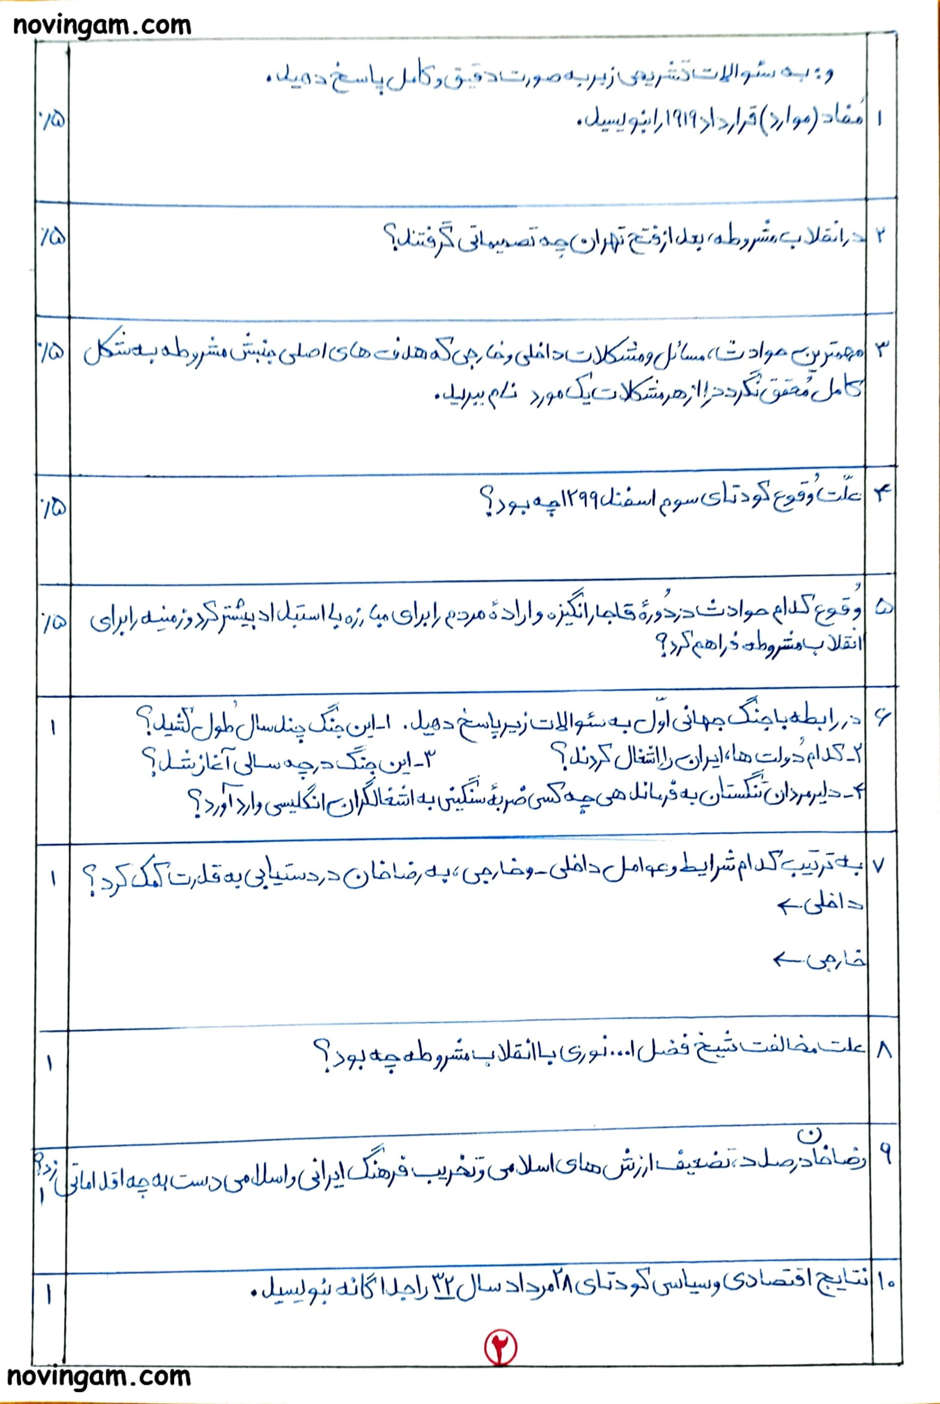 novingam.com
و: به سئوالات تشریحی زیر به صورت دقیق و کامل پاسخ دهید.
۱ مُفاد (موارد) قرارداد ۱۹۱۹ را بنویسید. ٪۵
۲ در انقلاب مشروطه، بعد از فتح تهران چه تصمیماتی گرفتند؟ ٪۵
۳ مهمترین حوادث، مسائل و مشکلات داخلی و خارجی که هدف های اصلی جنبش مشروطه به شکل ٪۵
کامل مُحقق نگردد را از هر مشکلات یک مورد نام ببرید.
۴ علّت وُقوع کودتای سوم اسفند ۱۲۹۹ چه بود؟ ٪۵
۵ وُقوع کدام حوادث در دُورهٔ قاجار انگیزه و ارادهٔ مردم را برای مبارزه با استبداد بیشتر کرد و زمینه را برای ٪۵
انقلاب مشروطه فراهم کرد؟
۶ در رابطه با جنگ جهانی اوّل به سئوالات زیر پاسخ دهید. ۱ـ این جنگ چند سال طول کشید؟ ۱
۲ـ کدام دُولت ها، ایران را اشغال کردند؟ ۳ـ این جنگ در چه سالی آغاز شد؟
۴ـ دلیرمردان تنگستان به فرماندهی چه کسی ضربهٔ سنگینی به اشغالگران انگلیسی وارد آورد؟
۷ به ترتیب کدام شرایط و عوامل داخلی ـ و خارجی، به رضاخان در دستیابی به قدرت کمک کرد؟ ۱
داخلی ←
خارجی ←
۸ علت مخالفت شیخ فضل ا... نوری با انقلاب مشروطه چه بود؟ ۱
۹ رضاخان درصدد، تضعیف ارزش های اسلامی و تخریب فرهنگ ایرانی و اسلامی دست به چه اقداماتی زد؟ ۱
۱۰ نتایج اقتصادی و سیاسی کودتای ۲۸ مرداد سال ۳۲ را جداگانه بنویسید. ۱
۲
novingam.com